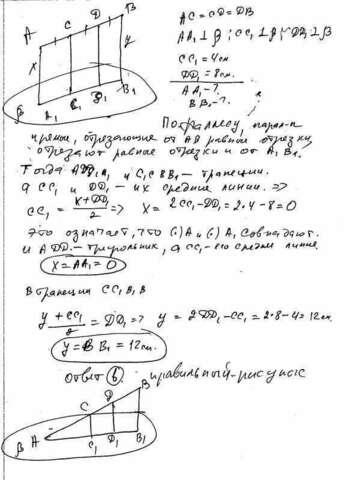 A C D B
x y
β A₁ C₁ D₁ B₁
AC = CD = DB
AA₁ ⊥ β; CC₁ ⊥ β; DD₁ ⊥ β
CC₁ = 4см
DD₁ = 8см.
AA₁ - ?
BB₁ - ?
По Фалесу, парал-е
прямые, отрезающие от AB равные отрезки,
отрезают равные отрезки и от A₁B₁.
Тогда ADD₁A₁ и C₁CBB₁ - трапеции.
а CC₁ и DD₁ - их средние линии. =>
CC₁ = (x+DD₁)/2 => x = 2CC₁ - DD₁ = 2·4 - 8 = 0
Это означает, что (·)A и (·)A₁ совпадают.
и ADD₁ - треугольник, а CC₁ - его средняя линия.
x = AA₁ = 0
В трапеции CC₁B₁B
(y + CC₁)/2 = DD₁ => y = 2DD₁ - CC₁ = 2·8 - 4 = 12см.
y = BB₁ = 12см.
ответ б. правильный рисунок
B
D
C
β A C₁ D₁ B₁